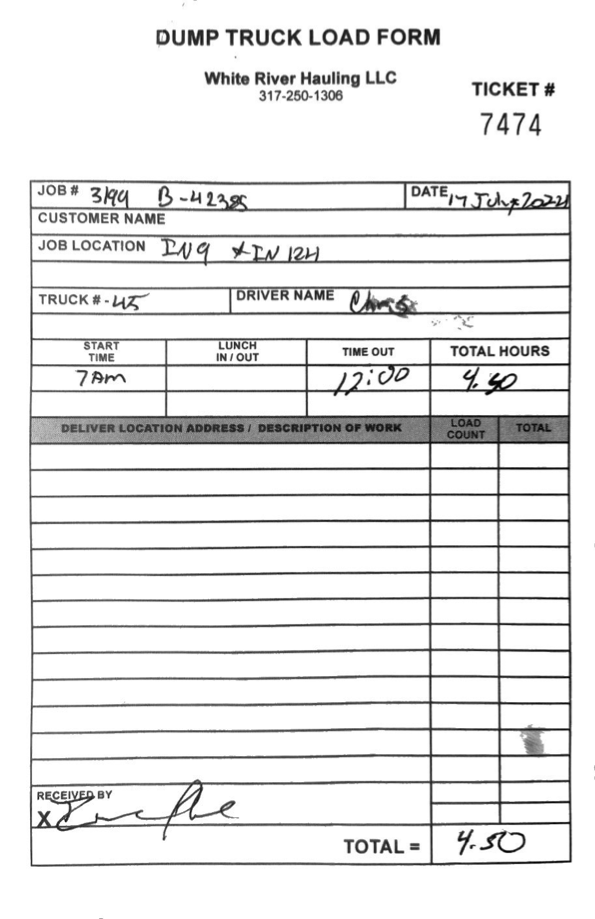 DUMP TRUCK LOAD FORM
White River Hauling LLC
317-250-1306
TICKET #
7474
JOB # 3199 B-42385
DATE 17 July 2024
CUSTOMER NAME
JOB LOCATION IN9 & IN 124
TRUCK # - 45 DRIVER NAME
START TIME LUNCH IN / OUT TIME OUT TOTAL HOURS
7 Am 12:00 4.50
DELIVER LOCATION ADDRESS / DESCRIPTION OF WORK LOAD COUNT TOTAL
RECEIVED BY
X
TOTAL = 4.50